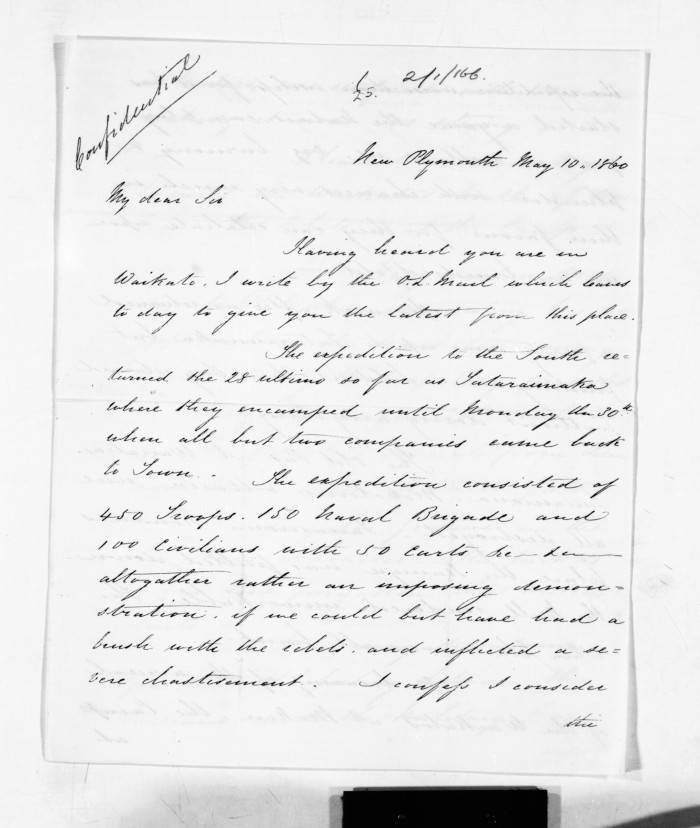 Confidential
2/1/166.
25.
New Plymouth May 10. 1860
My dear Sir
Having heard you are in
Waikato. I write by the O. L. Mail which leaves
to day to give you the latest from this place.
The expedition to the South re=
turned the 28 ultimo so far as Tataraimaka
where they encamped until Monday the 30th
when all but two companies came back
to Town. The expedition consisted of
450 Troops. 150 Naval Brigade and
100 Civilians with 50 Carts &c &c
altogather rather an imposing demon=
stration. if we could but have had a
brush with the rebels. and inflicted a se=
vere chastisement. I confess I consider
the